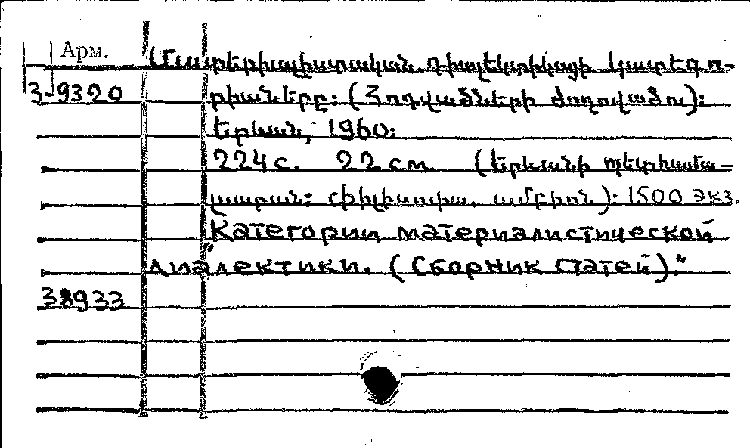 Арм.
Մատերիալիստական դիալեկտիկայի կատեգո-
3-9320
րիաները: (Հոդվածների ժողովածու):
Երևան, 1960:
224 с. 22 см. (Երևանի պետհամա-
լսարան: Փիլիսոփ. ամբիոն): 1500 экз.
"Категории материалистической
диалектики. (Сборник статей)."
38933